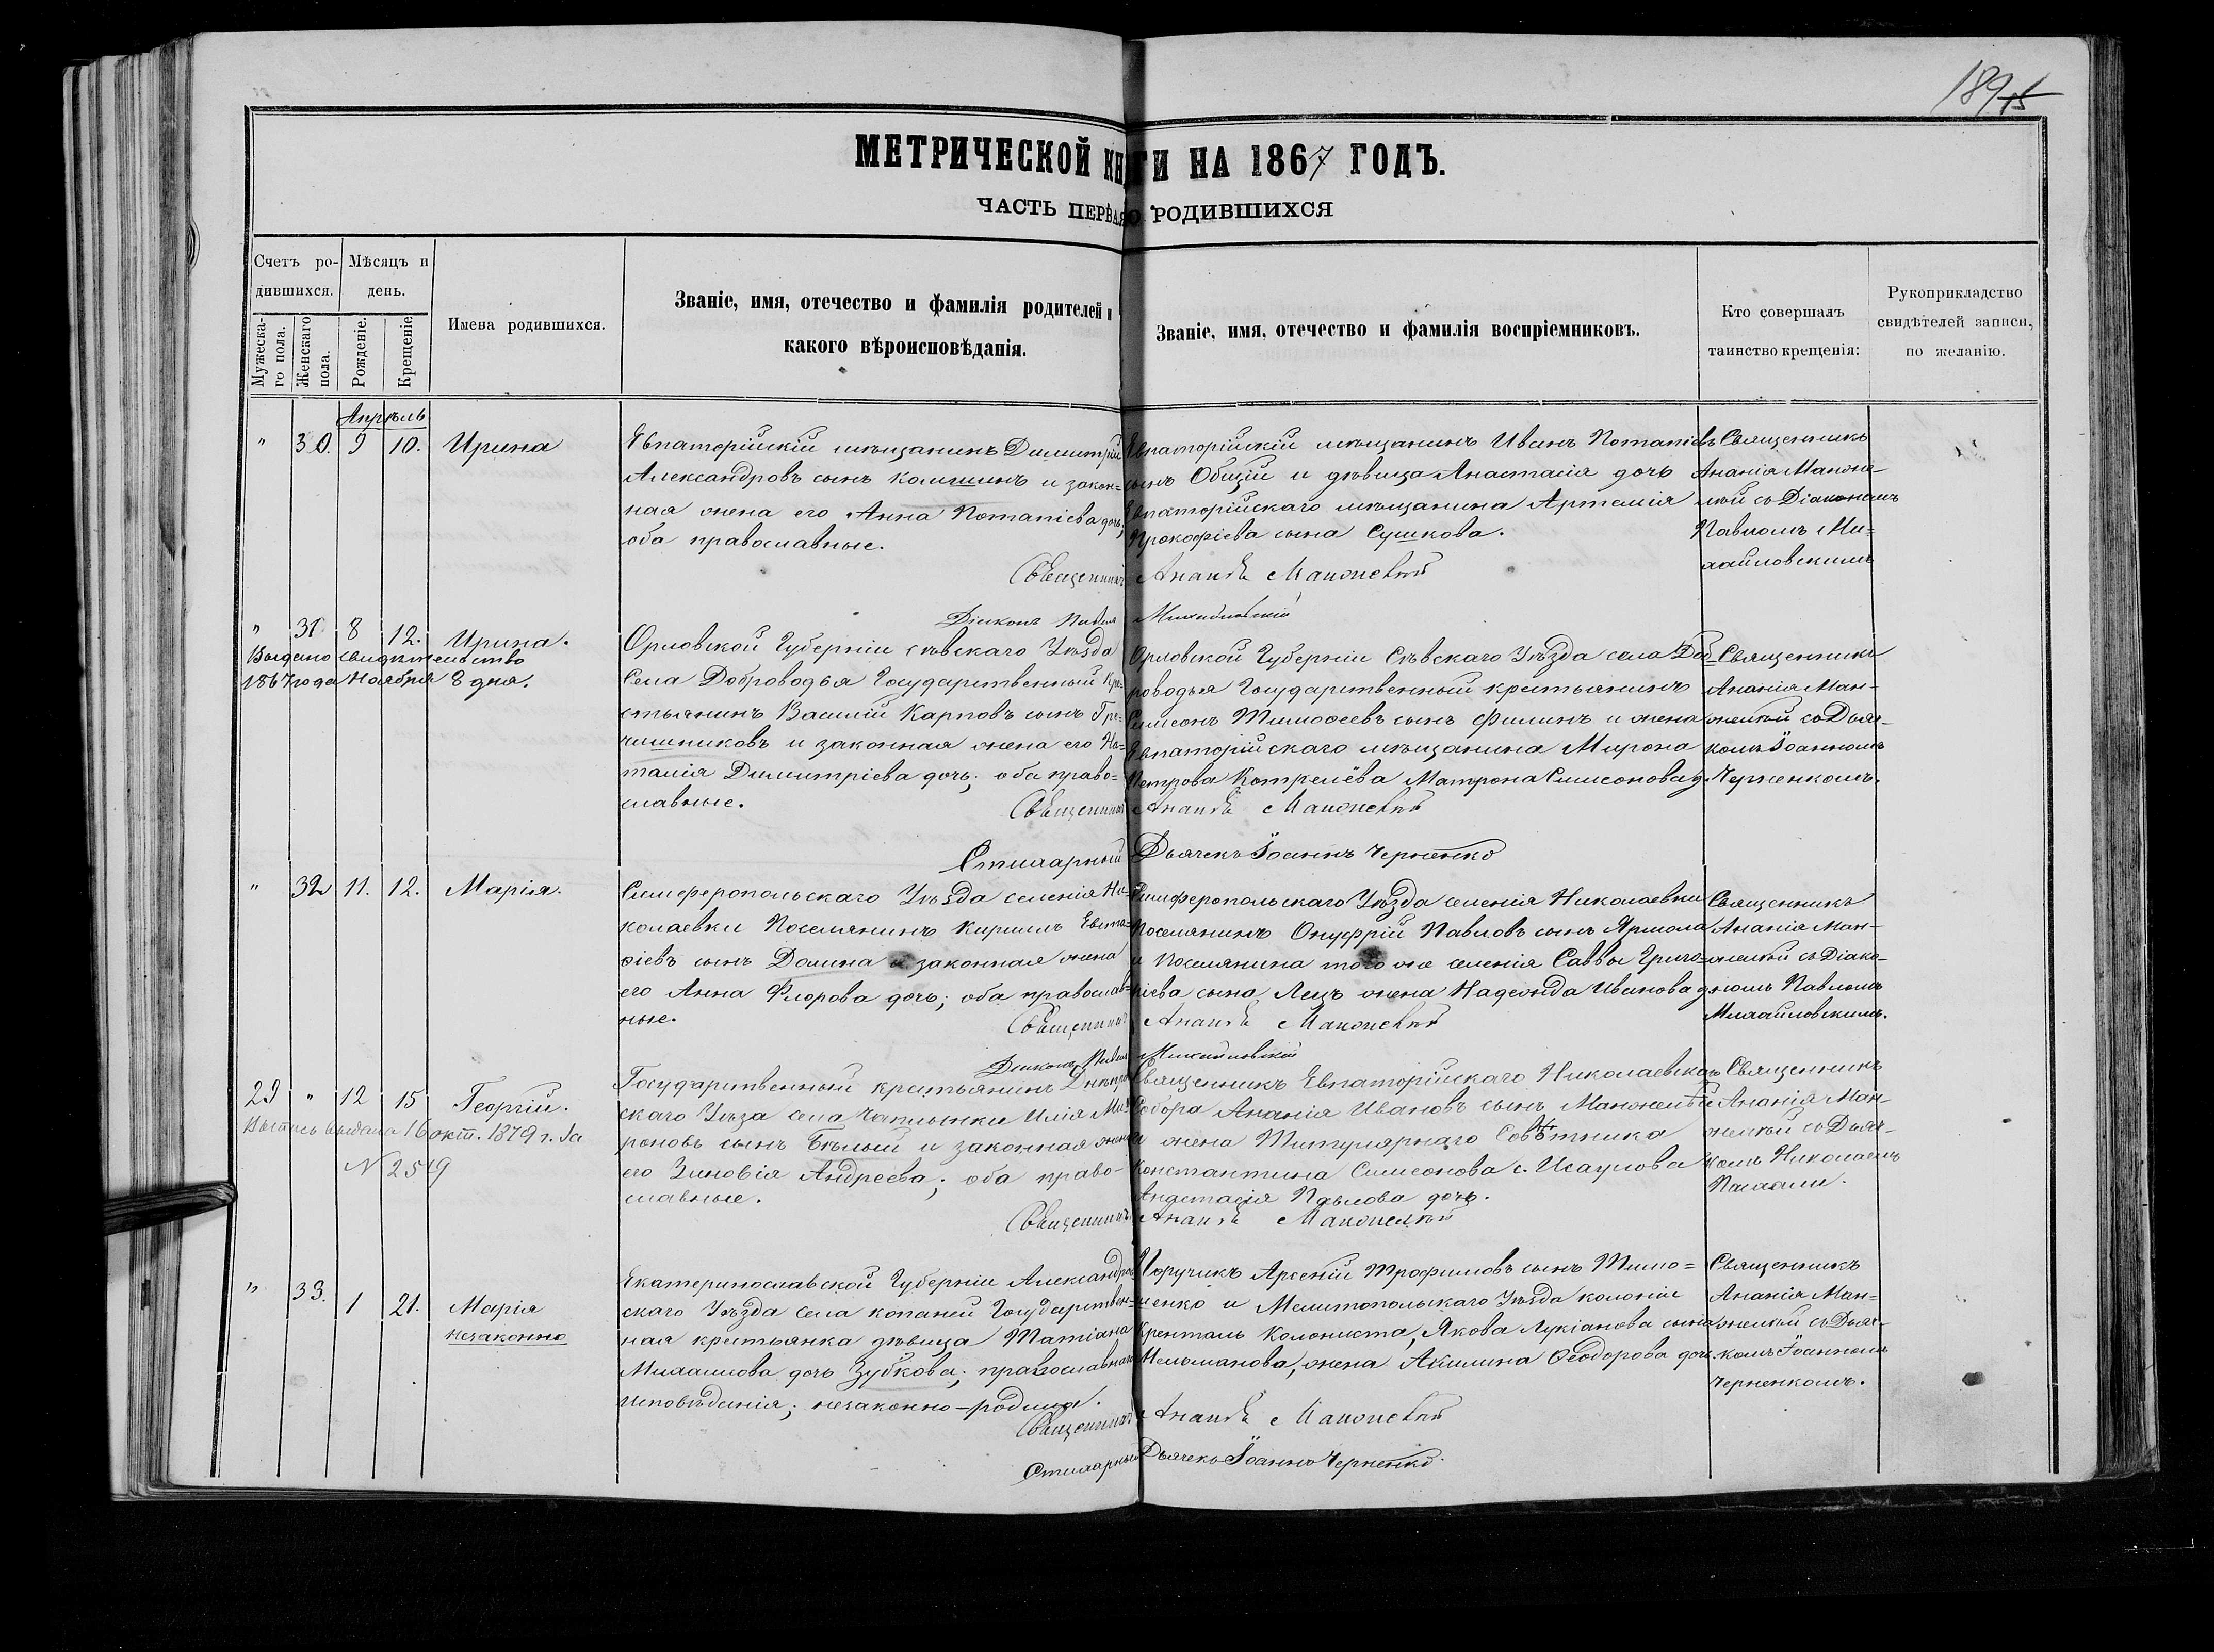 189
15
МЕТРИЧЕСКОЙ КНИГИ НА 1867 ГОДЪ.
ЧАСТЬ ПЕРВАЯ О РОДИВШИХСЯ
Счетъ ро-
дившихся.
Мужеска-
го пола.
Женскаго
пола.
Мѣсяцъ и
день.
Рожденіе.
Крещеніе.
Имена родившихся.
Званіе, имя, отечество и фамилія родителей и
какого вѣроисповѣданія.
Званіе, имя, отечество и фамилія воспріемниковъ.
Кто совершалъ
таинство крещенія:
Рукоприкладство
свидѣтелей записи,
по желанію.
Апрѣль
" 30. 9 10. Ирина
Евпаторійскій мѣщанинъ Димитрій
Александровъ сынъ Камшинъ и закон=
ная жена его Анна Потапіева дочь;
оба православные.
Евпаторійскій мѣщанинъ Иванъ Потапіевъ
сынъ Общій и дѣвица Анастасія дочь
Евпаторійскаго мѣщанина Артемія
Прокофіева сына Сушкова.
Священникъ
Ананія Манже-
лѣй съ Діакономъ
Павломъ Ми-
хайловскимъ
Священникъ Ананія Манжелѣй
Діаконъ Павелъ Михайловскій
" 31 8 12. Ирина.
Выдано свидѣтельство
1867 года Ноября 8 дня.
Орловской Губерніи Сѣвскаго Уѣзда
Села Доброводья Государственный Кре-
стьянинъ Василій Карповъ сынъ Гре-
чишниковъ и законная жена его На=
талія Димитріева дочь; оба право=
славные.
Орловской Губерніи Сѣвскаго Уѣзда села Доб-
роводья Государственный крестьянинъ
Симеонъ Тимофеевъ сынъ Филинъ и жена
Евпаторійскаго мѣщанина Мирона
Петрова Котрелёва Матрона Симеонова д.
Священникъ
Ананія Ман-
желѣй съ Дьяч-
комъ Іоанномъ
Черненкомъ.
Священникъ Ананія Манжелѣй
Стихарный Дьячекъ Іоаннъ Черненко
" 32 11. 12. Марія.
Симферопольскаго Уѣзда селенія Ни-
колаевки Поселянинъ Кириллъ Евста-
фіевъ сынъ Долина и законная жена
его Анна Флорова дочь; оба православ-
ные.
Симферопольскаго Уѣзда селенія Николаевки
Поселянинъ Онуфрій Павловъ сынъ Ярмола
и Поселянина того же селенія Саввы Григо-
ріева сына Лецъ жена Надежда Иванова д.
Священникъ
Ананія Ман-
желѣй съ Діако-
номъ Павломъ
Михайловскимъ.
Священникъ Ананія Манжелѣй
Діаконъ Павелъ Михайловскій
29 " 12 15 Георгій.
Выпись выдана 16 окт. 1879 г. За
N 2519
Государственный крестьянинъ Днѣпров
скаго Уѣза села Чаплынки Илія Ми-
роновъ сынъ Бѣлый и законная жена
его Зиновія Андреева; оба право-
славные.
Священникъ Евпаторійскаго Николаевскаго
Собора Ананія Ивановъ сынъ Манжелѣй
и жена Титулярнаго Совѣтника
Константина Симеонова с. Исаулова
Анастасія Павлова дочь.
Священникъ
Ананія Ман-
желѣй съ Дьяч-
комъ Николаемъ
Священникъ Ананія Манжелѣй
" 33. 1 21. Марія
незаконно
Екатеринославской Губерніи Александров
скаго Уѣзда Села копаней Государствен-
ная крестьянка дѣвица Татіана
Михаилова дочь Зубкова; православнаго
исповѣданія; незаконно-родила.
Поручикъ Арсеній Трофимовъ сынъ Тимо=
шенко и Мелитопольскаго Уѣзда колоніи
Кронталь Колониста, Якова Лукіанова сына
Мельманова, жена Акилина Ѳеодорова дочь.
Священникъ
Ананія Ман=
желѣй съ Дьяч-
комъ Іоанномъ
Черненкомъ.
Священникъ Ананія Манжелѣй
Стихарный Дьячекъ Іоаннъ Черненко